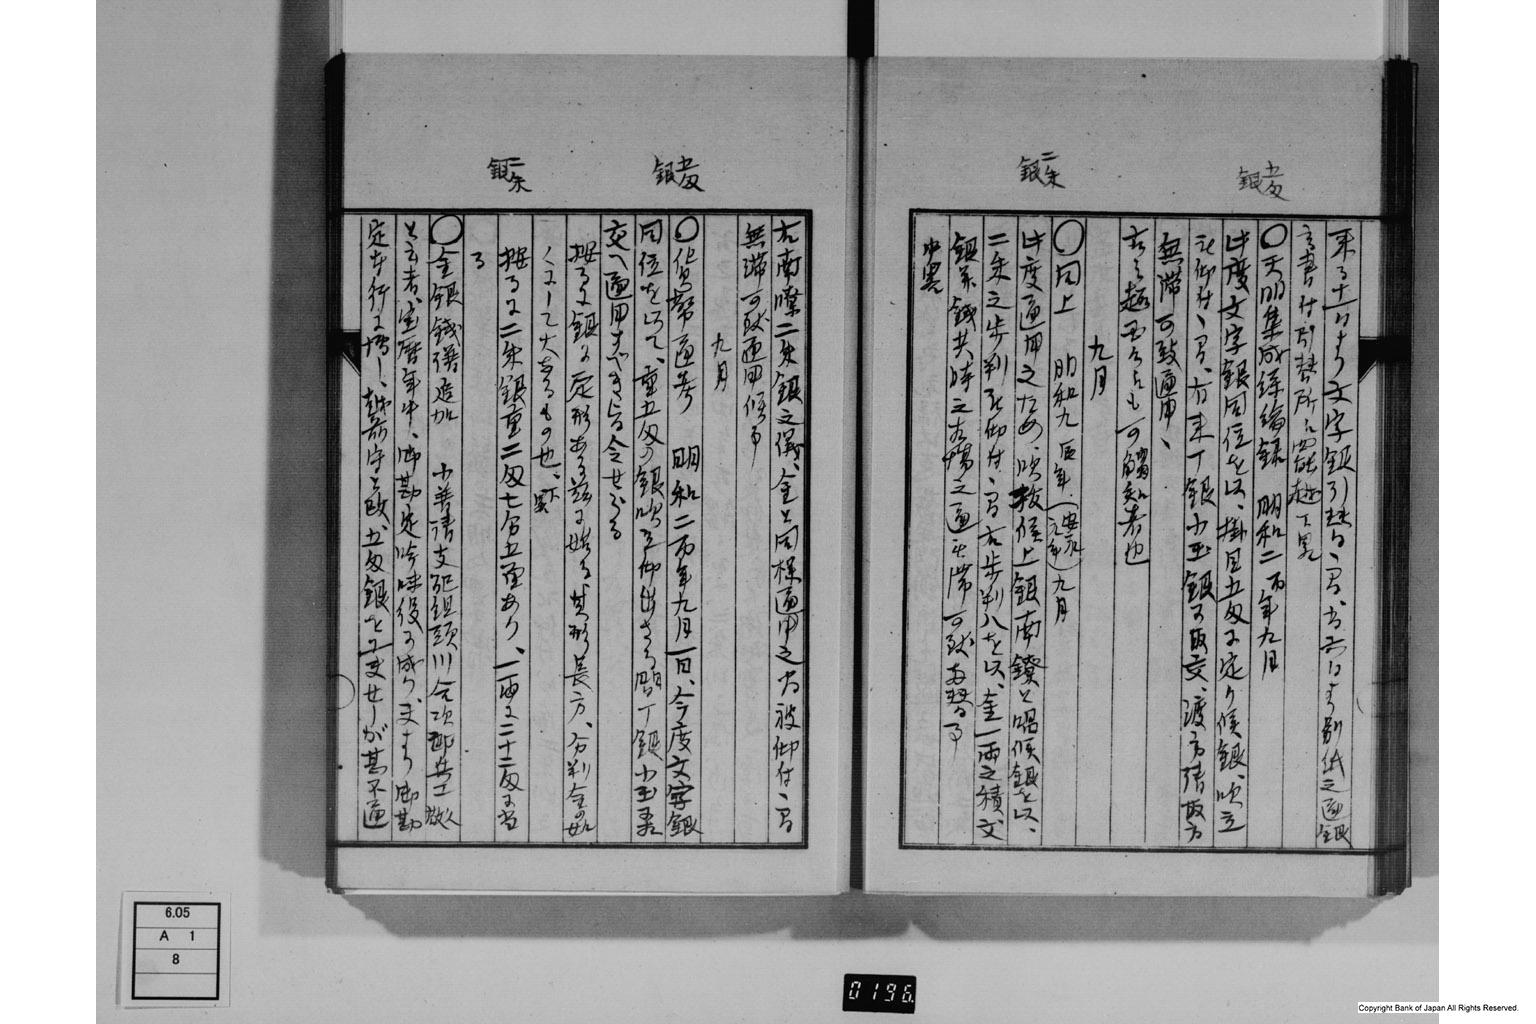 五匁銀
二朱銀
来る十一日より文字銀引替
書付引替所
○天明集成絲綸録 明和二酉年九月
此度文字銀同位を以、掛目五匁に定り候銀、吹立
被仰付、間、有来丁銀小玉銀に取交、渡方請取方
無滞可致通用、
右之趣可触知者也
九月
○同上 明和九辰年(安永元年)九月
此度通用之ため、吹抜候上銀南鐐と唱候銀を以、
二朱之歩判被仰付、間右歩判八を以、金一両之積、文
銀並銭共時之相場之通無滞可致両替事
中略
五匁銀
二朱銀
右南鐐二朱銀之儀、金と同様通用之为被仰付、間
無滞可致通用候事
九月
○貨幣通考 明和二酉年九月一日、今度文字銀
同位を以て、重五匁の銀吹立仰出さる間丁銀小玉銀
交へ通用すべき旨令せらる
按るに銀に定形ある茲に始る其形長方、分判金の如
くにして大なるもの也、下略
按るに二朱銀重二匁七分五厘あり、一両に二十二匁に当
る
○金銀銭譜追加 小普請支配組頭川合次郎兵衛
と云者、宝暦年中、御勘定吟味役に成り、夫より御勘
定奉行に擢し、越前守と改、五匁銀と